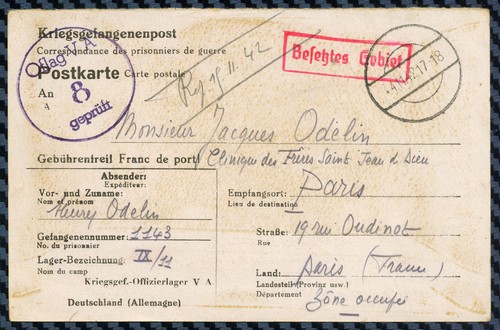 Kriegsgefangenenpost
Correspondance des prisonniers de guerre
Postkarte Carte postale
Oflag V A
8
geprüft
Besetztes Gebiet
17-18
An
A
Monsieur Jacques Odelin
Gebührenfrei! Franc de port!
Clinique des Frères Saint Jean d Dieu
Absender:
Expéditeur:
Vor- und Zuname:
Nom et prénom
Henry Odelin
Gefangenennummer: 1143
No. du prisonnier
Lager-Bezeichnung: IX/11
Nom du camp
Kriegsgef.-Offizierlager V A
Deutschland (Allemagne)
Empfangsort: Paris
Lieu de destination
Straße: 19 rue Oudinot
Rue
Land: Paris (France)
Landesteil (Provinz usw.)
Département
Zône occupée